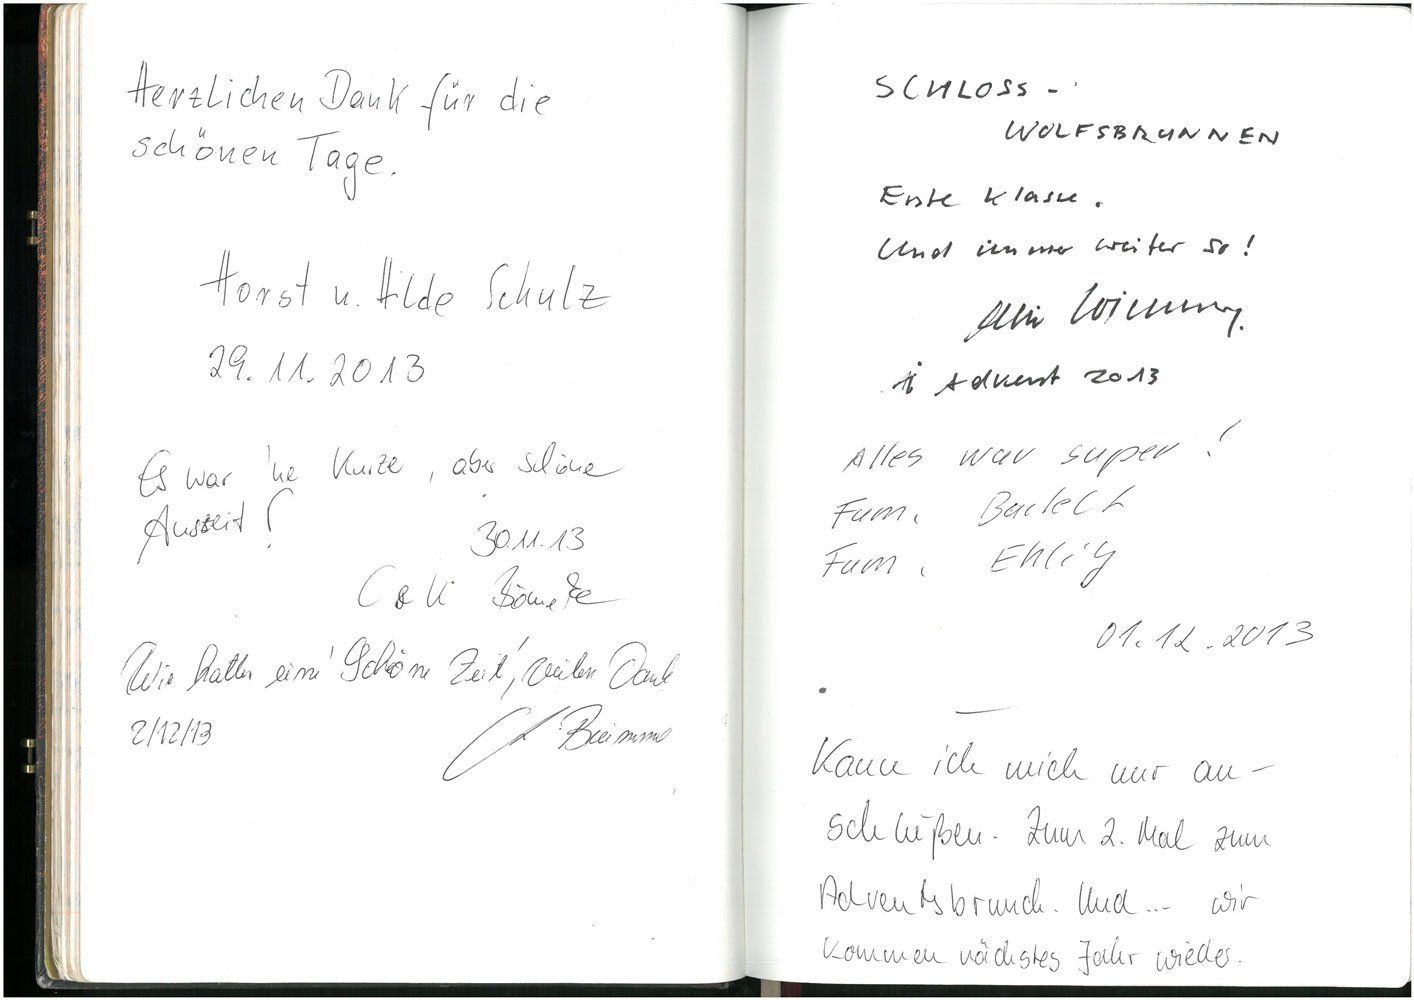 Herzlichen Dank für die
schönen Tage.
Horst u. Hilde Schulz
29.11.2013
Es war 'ne kurze, aber schöne
Auszeit!
30.11.13
Wir hatten eine 'Schöne Zeit', vielen Dank
2/12/13
SCHLOSS -
WOLFSBRUNNEN
Erste Klasse.
Und immer weiter so!
Advent 2013
Alles war super!
Fam.
Fam. Ehlig
01.12.2013
Kann ich mich nur an-
schließen. Zum 2. Mal zum
Adventsbrunch. Und... wir
kommen nächstes Jahr wieder.